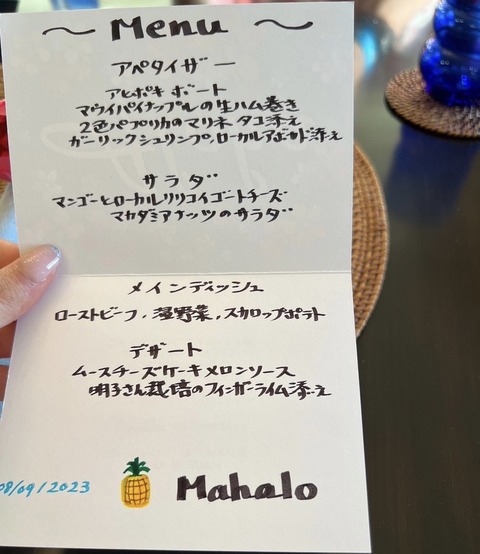 ～ Menu ～
アペタイザー
アヒポキ ボート
マウイパイナップルの生ハム巻き
2色パプリカのマリネ タコ添え
ガーリックシュリンプ,ローカルアボカド添え
サラダ
マンゴーとローカルリリコイゴートチーズ
マカダミアナッツのサラダ
メインディッシュ
ローストビーフ, 温野菜, スカロップポテト
デザート
ムースチーズケーキメロンソース
明子さん栽培のフィンガーライム添え
08/09/2023
Mahalo